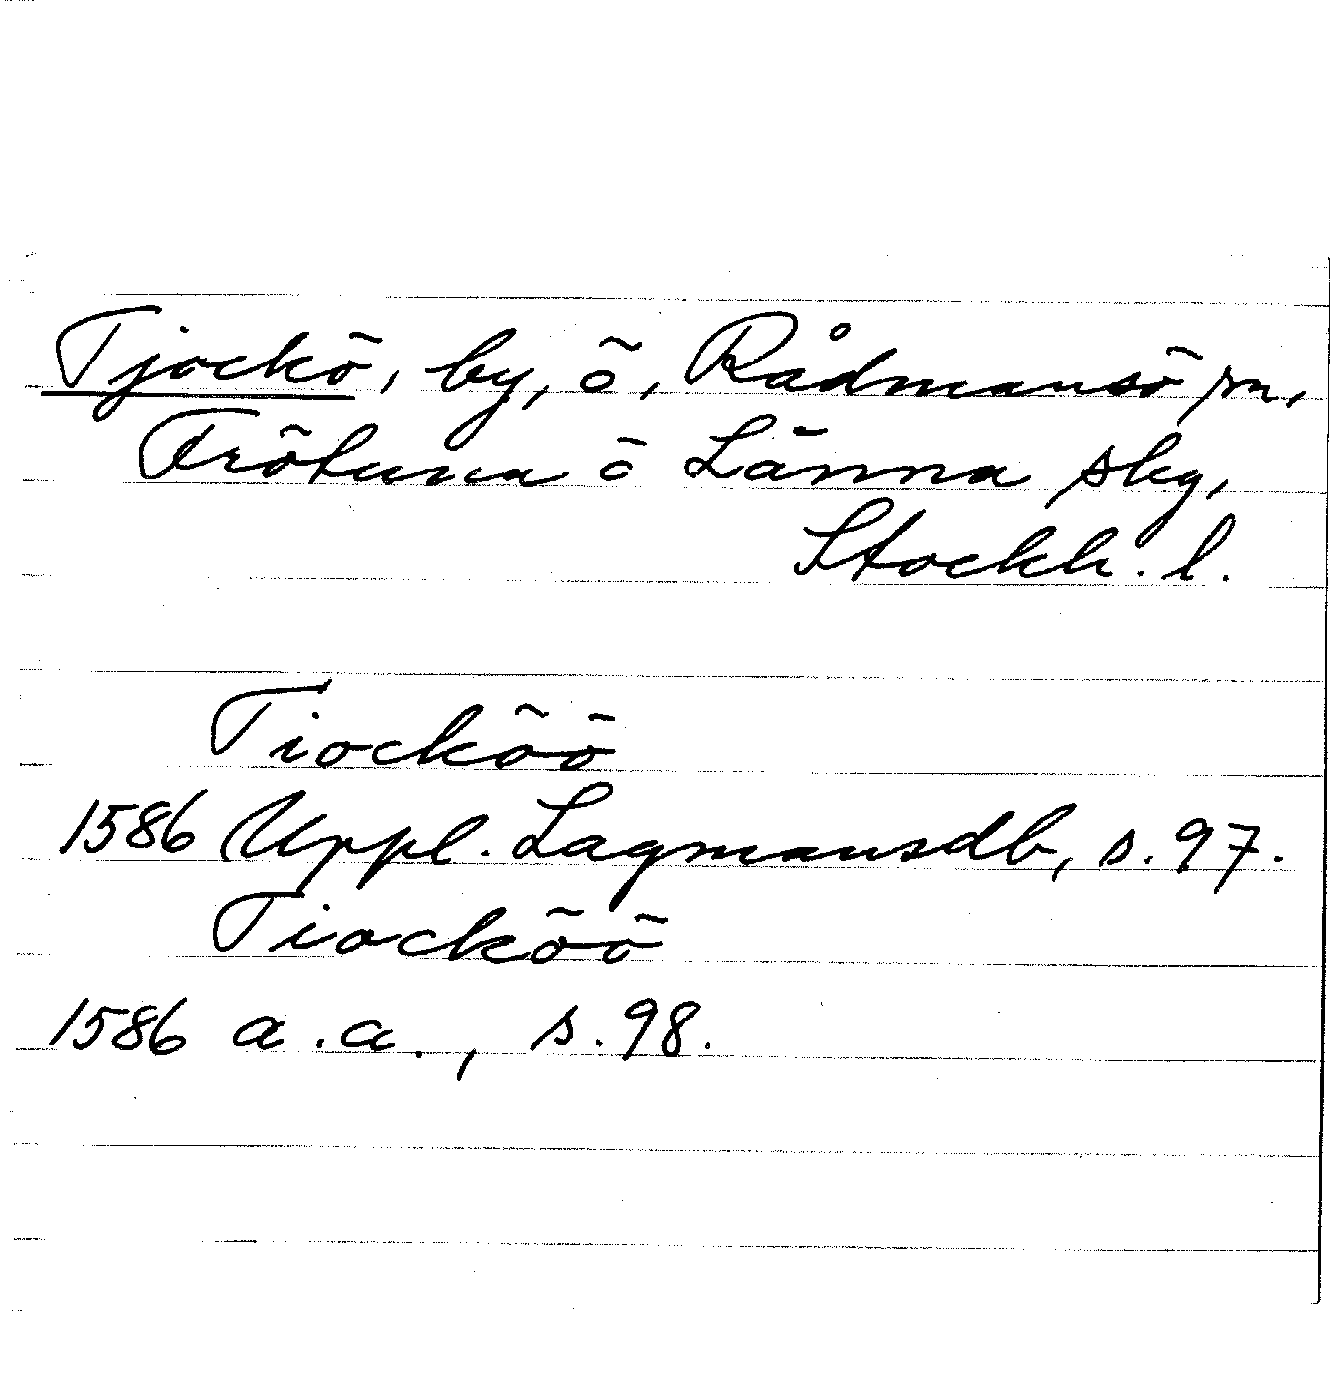 Tjockö, by, ö, Rådmansö sn,
Frötuna o Länna skg,
Stockh. l.
Tiocköö
1586 Uppl. Lagmansdb, s. 97.
Tiocköö
1586 a.a., s. 98.